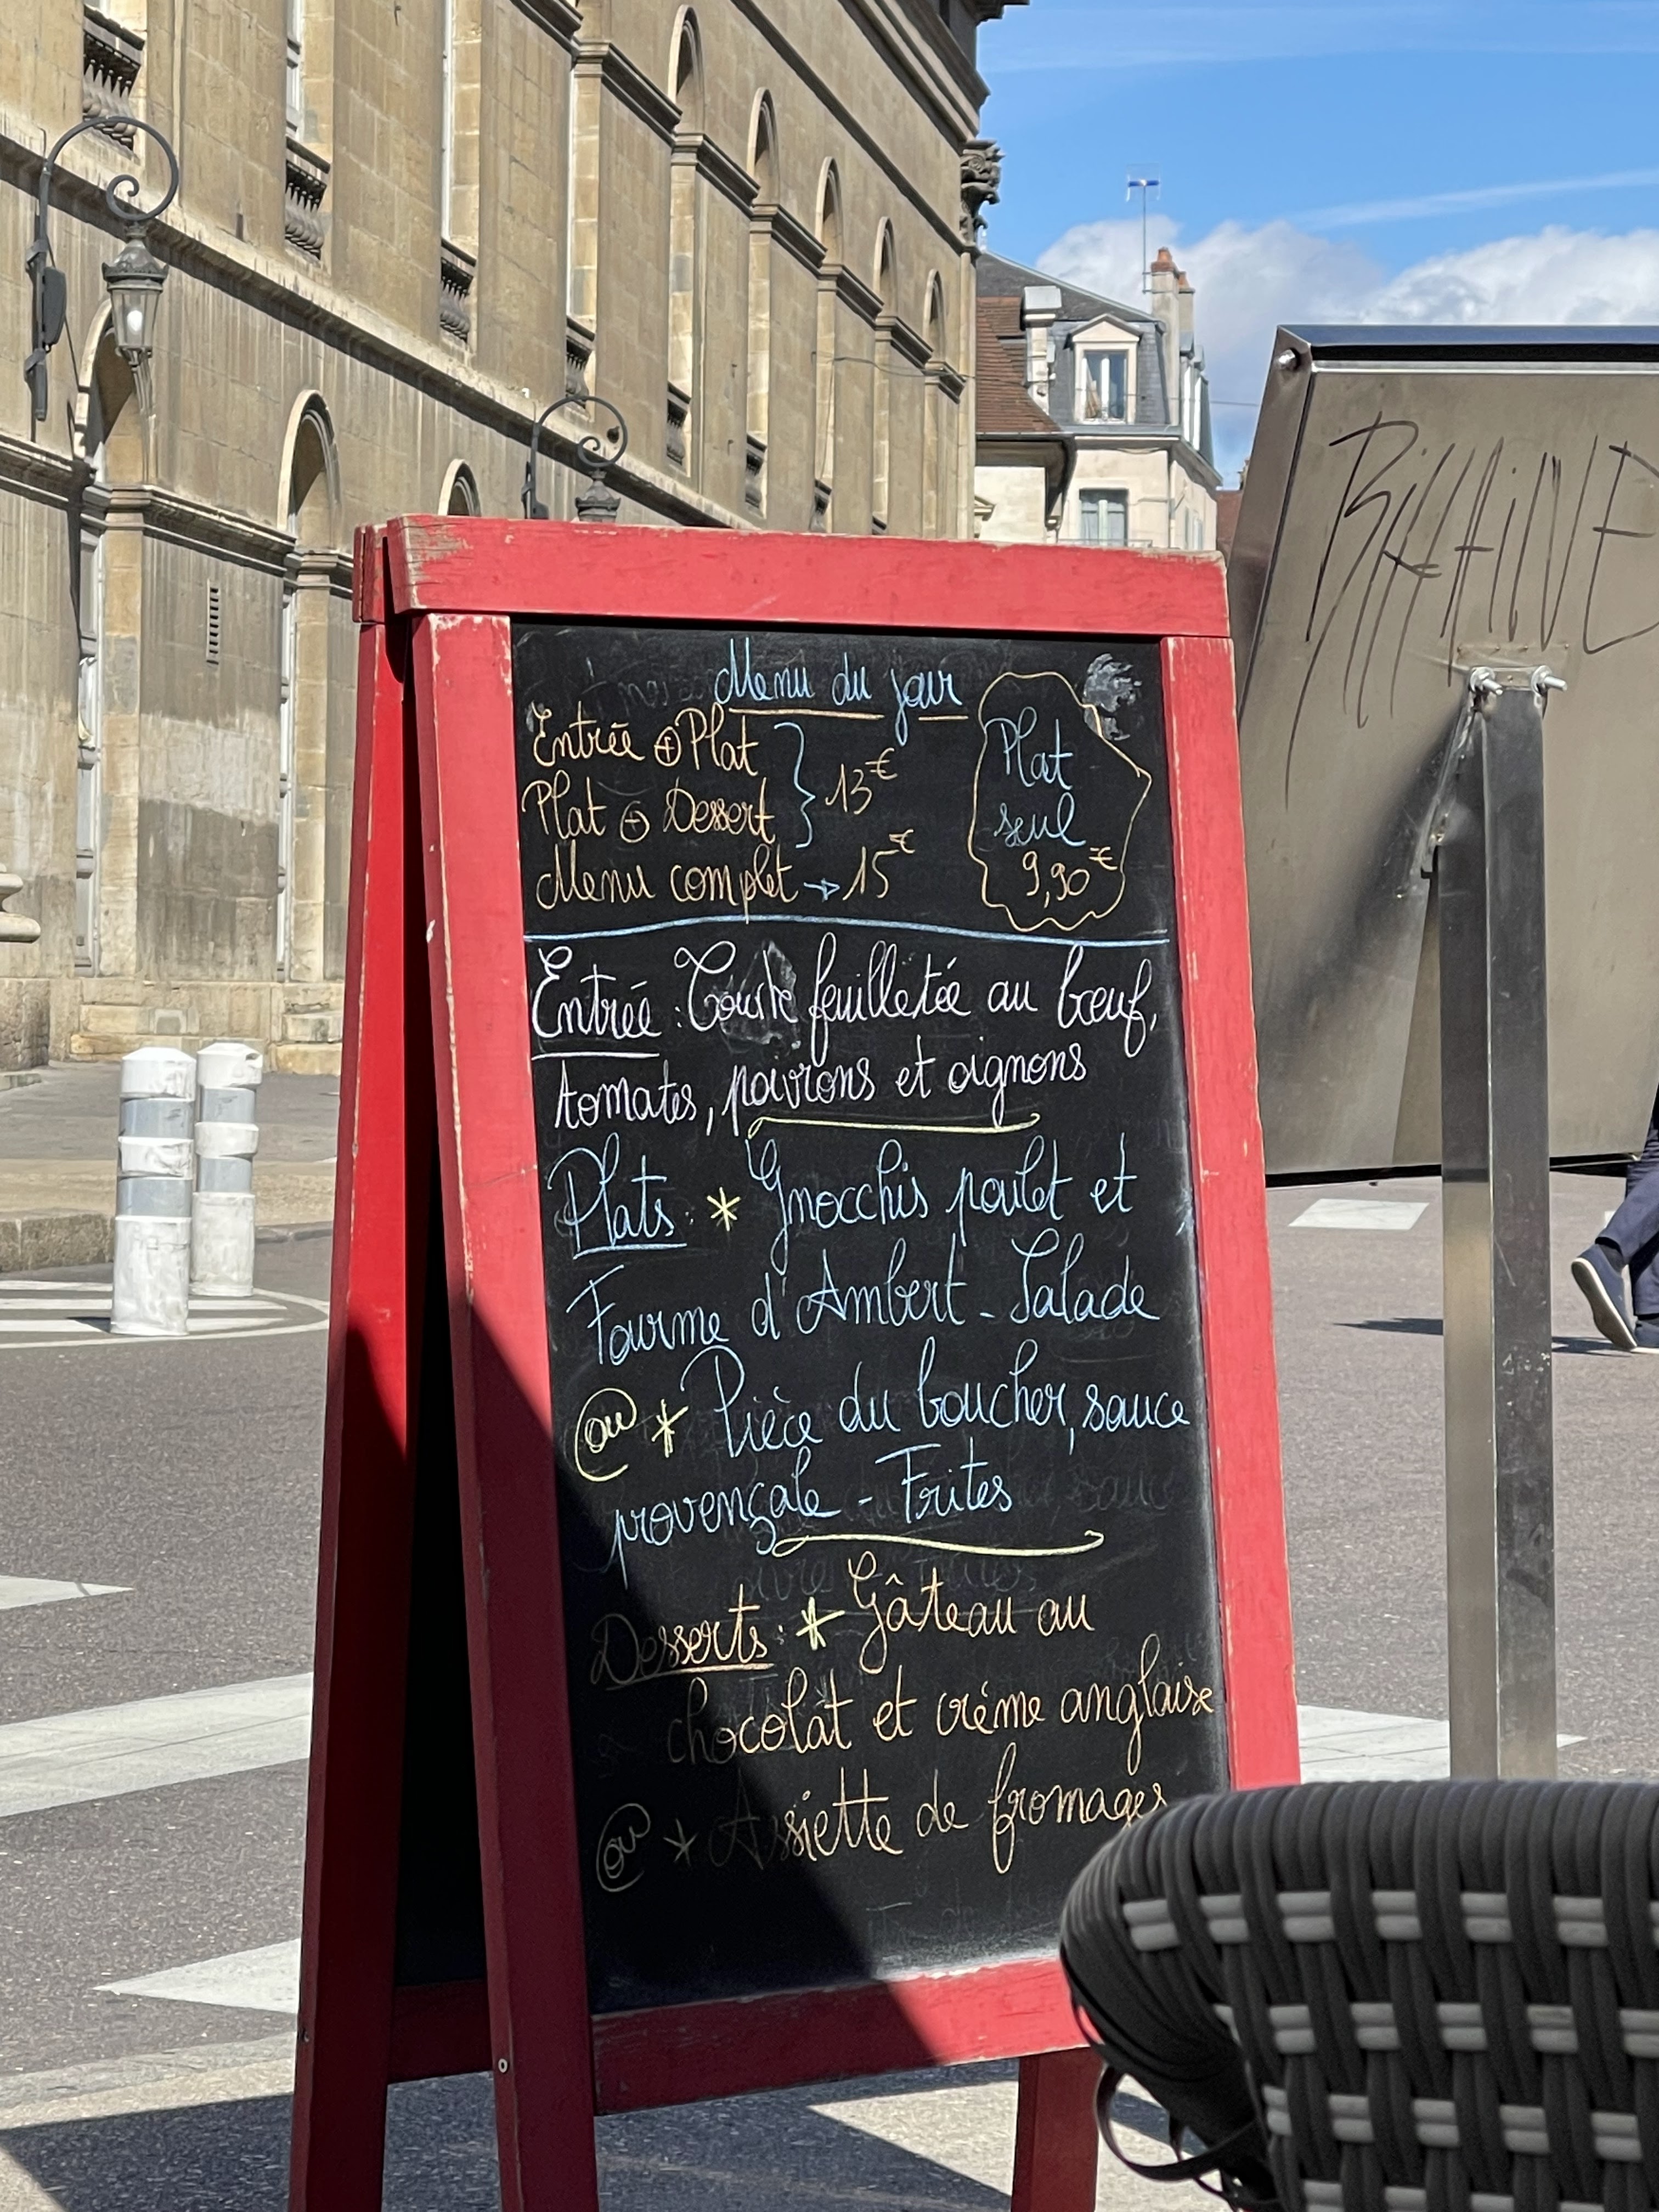 Menu du jour
Entrée + Plat
Plat + Dessert
13€
Menu complet → 15€
Plat
seul
9,90€
Entrée : Tourte feuilletée au bœuf,
tomates, poivrons et oignons
Plats : * Gnocchis poulet et
Fourme d'Ambert - Salade
ou * Pièce du boucher, sauce
provençale - Frites
Desserts : * Gâteau au
chocolat et crème anglaise
ou * Assiette de fromages